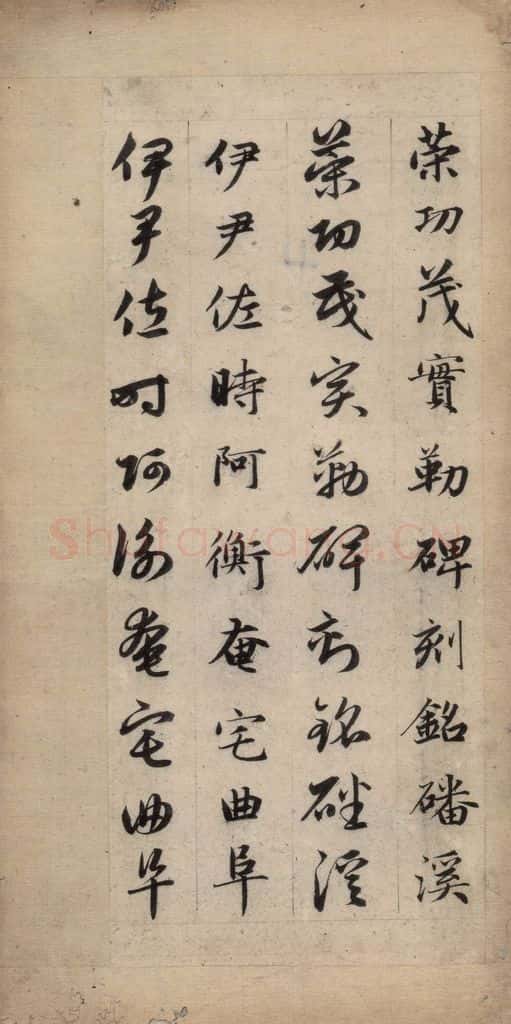 策功茂實勒碑刻銘磻溪
策功茂實勒碑刻銘磻溪
伊尹佐時阿衡奄宅曲阜
伊尹佐時阿衡奄宅曲阜
Shufawang.CN